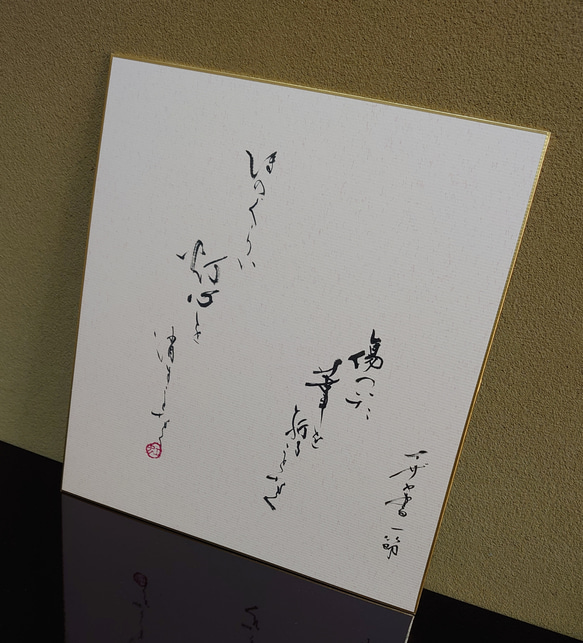 イザヤ書一節
傷ついた
葦を
折ることなく
ほのくらい
灯心を
消すことなく